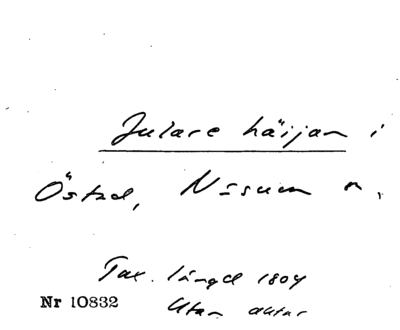 Julare häijan i
Östad, Nisum n,
Tax. längd 1804
Nr 10832 Utan auktor